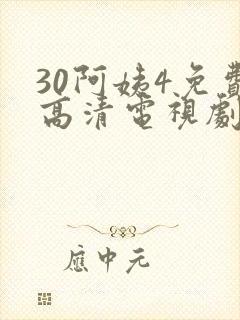 30阿姨4免費
高清電視劇
應中元